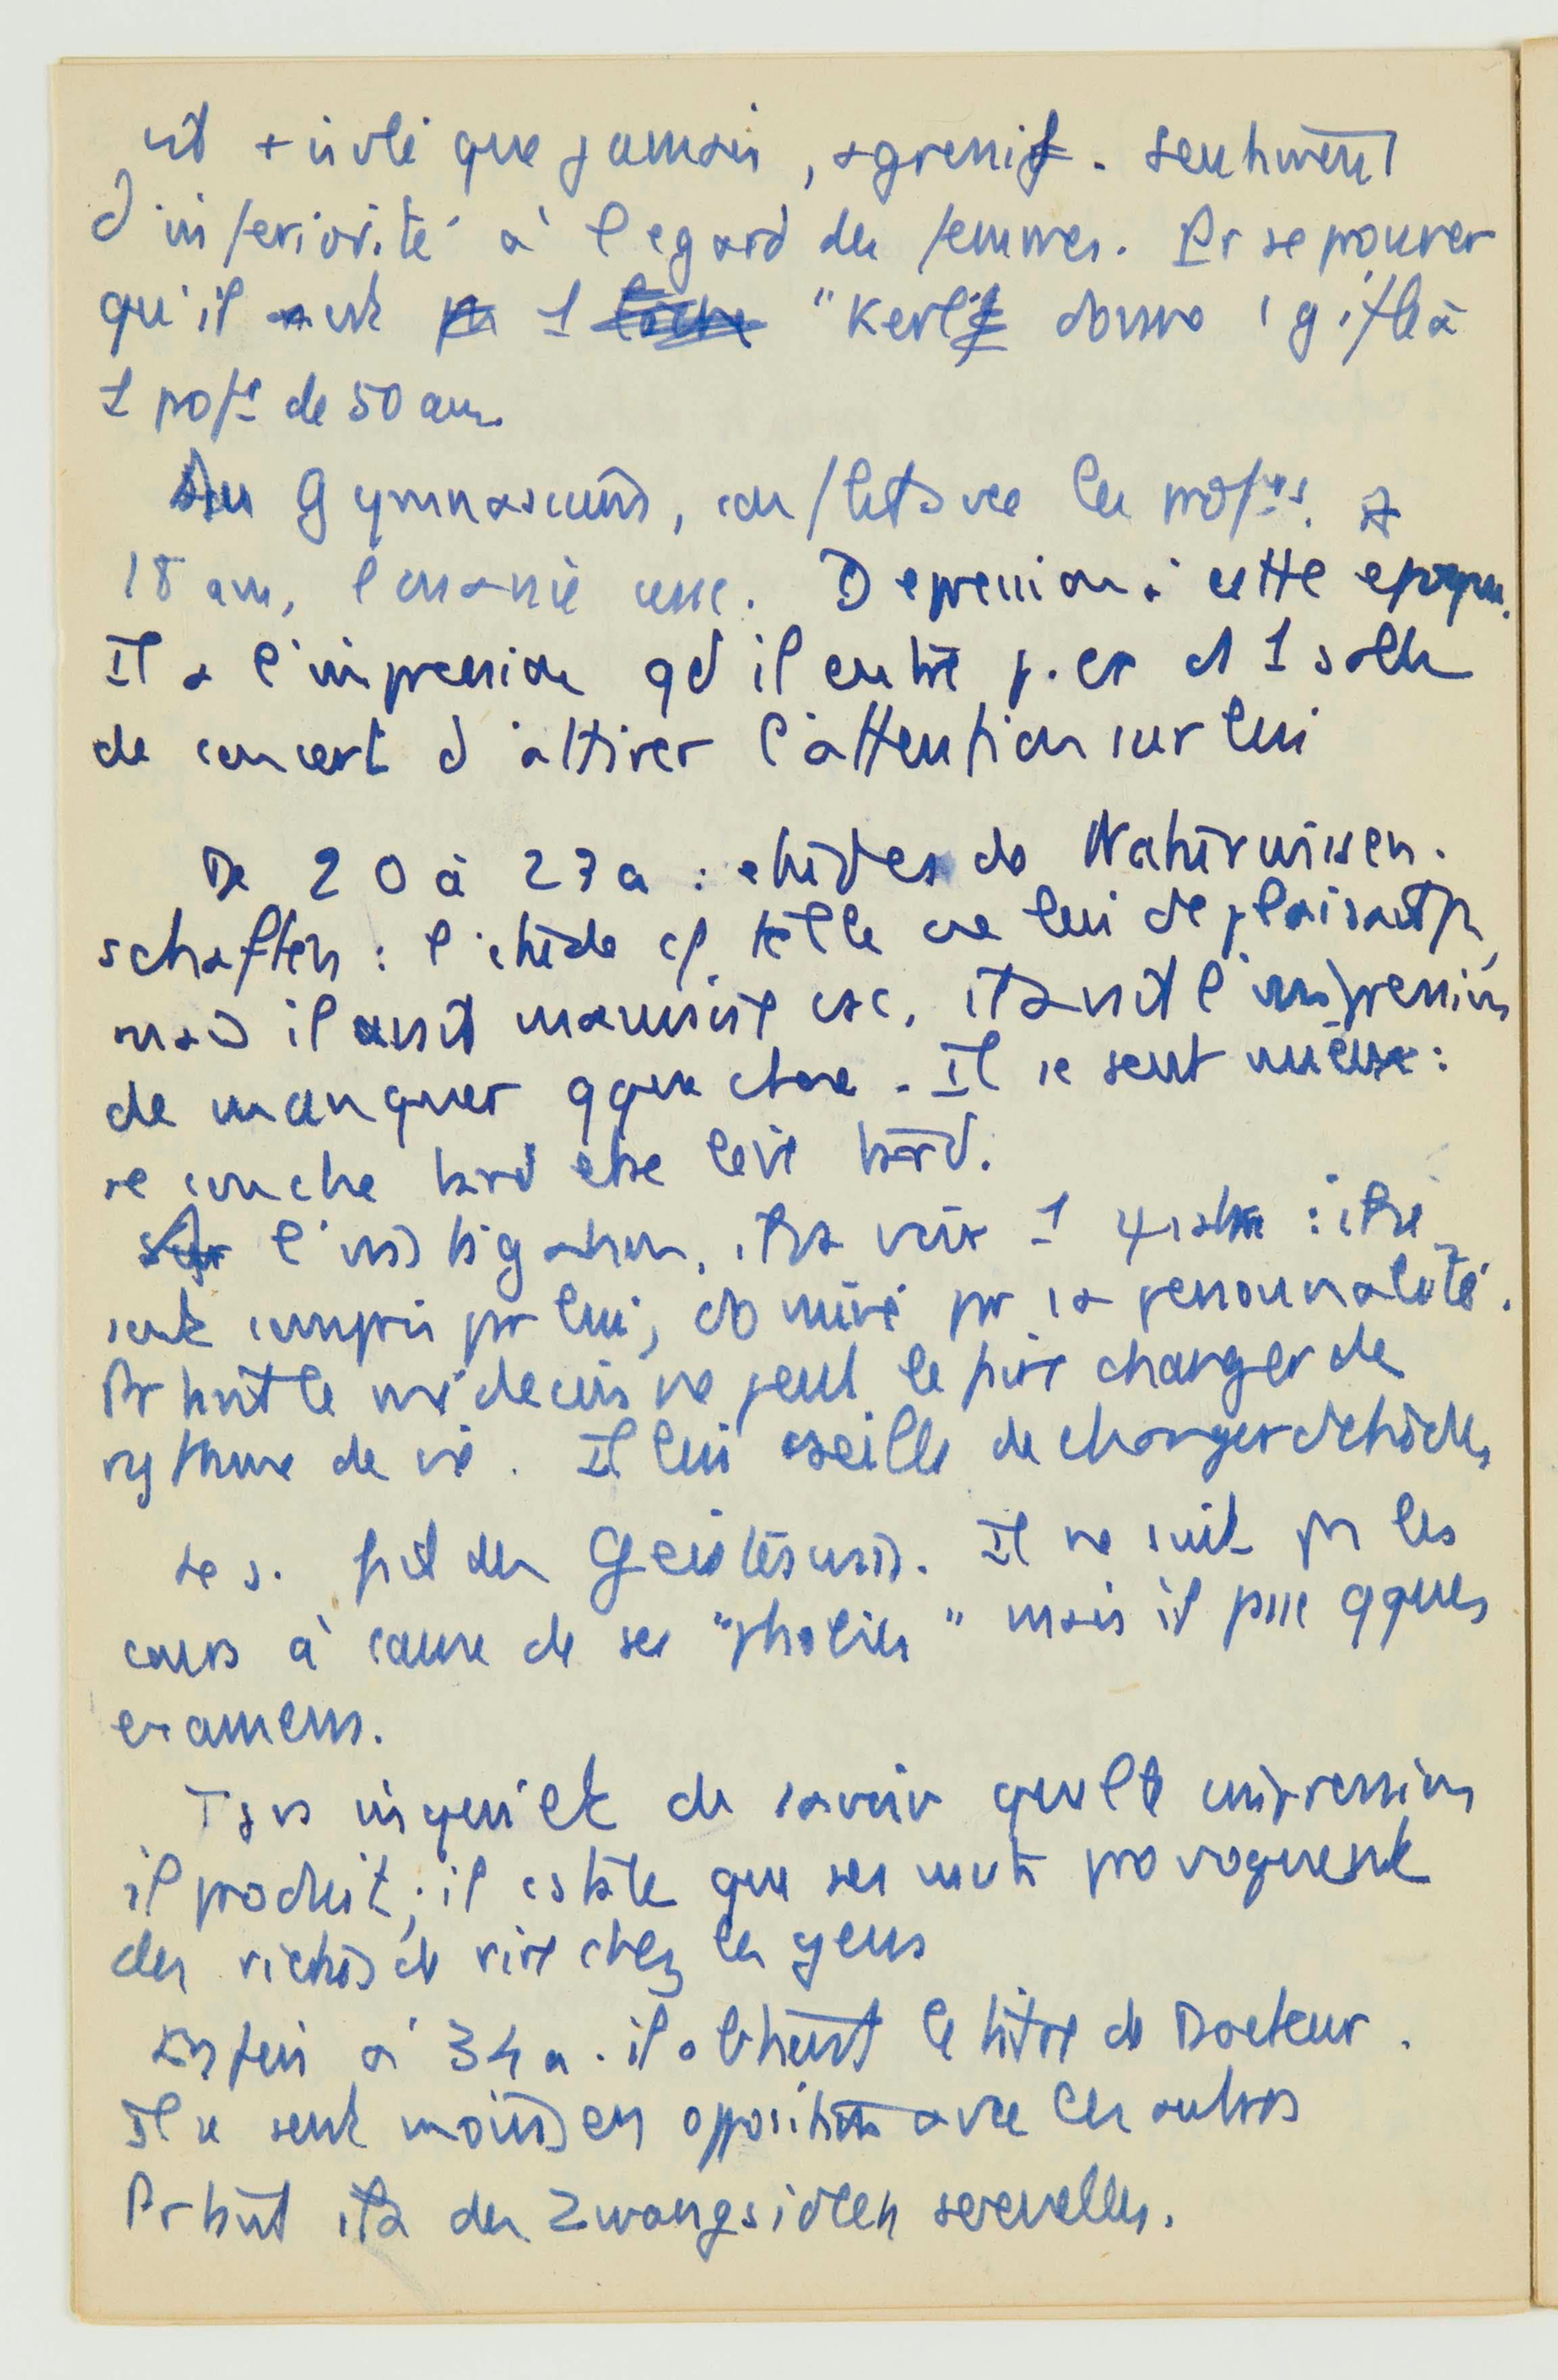 est + isolé que jamais, agressif. Sentiment
d'infériorité à l'egard des femmes. Pr se prouver
qu'il est 1 "Kerl" donne 1 gifle à
1 profr de 50 ans.
Au Gymnasium, conflits avec les profrs. A
18 ans, l'onanie cesse. Depression à cette epoque.
Il a l'impression qd il entre p. ex ds 1 salle
de concert d'attirer l'attention sur lui
De 20 à 23 a : etudes de Naturwissen-
schaften : l'etude cf. telle ne lui deplaisait ps,
mais il avait mauvaise csc, il avait l'impression
de manquer qque chose. Il se sent mieux :
se couche tard et se leve tard.
A l'instigation, il va voir 1 ψiatre : il se
sent compris par lui, dominé par sa personnalité.
Pr tant le médecin ne peut le faire changer de
rythme de vie. Il lui cseille de changer d'etudes,
Le s. fait des Geisteswiss. Il ne suit ps les
cours à cause de ses "phobies" mais il passe qques
examens.
Tjrs inquiet de savoir quelle impression
il produit ; il cstate que ses mots provoquent
des rictus de rire chez les gens
Enfin à 34 a. il obtient le titre de Docteur.
Il se sent moins en opposition avec les autres
Pr tant il a des Zwangsideen sexuelles.